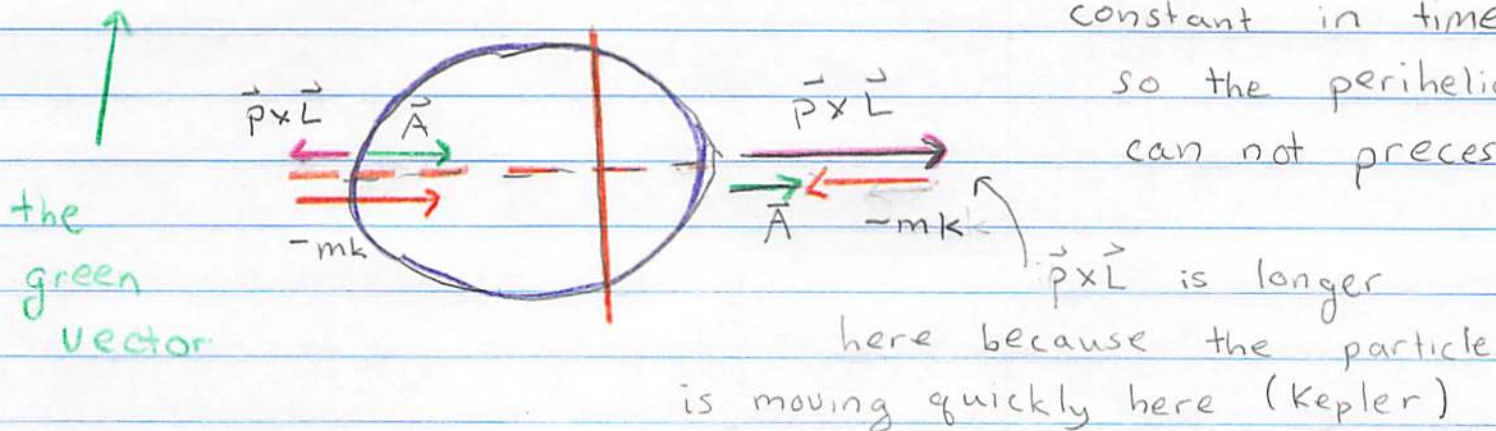 constant in time
so the perihelio
can not preces
p⃗xL⃗ A⃗
p⃗xL⃗
the
green
vector
-mk
A⃗
-mk
p⃗xL⃗ is longer
here because the particle
is moving quickly here (Kepler)